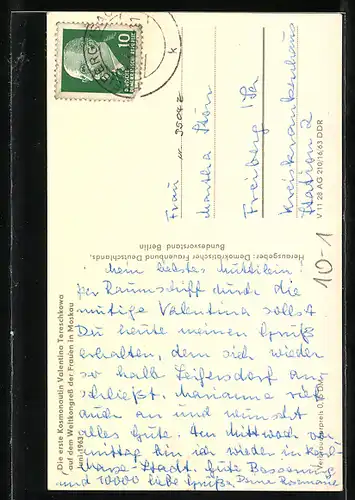 Die erste Kosmonautin Valentina Tereschkowa
auf dem Weltkongreß der Frauen in Moskau
Juni 1963
Mein liebstes Muttilein!
Per Raumschiff durch die
mutige Valentina sollst
Du heute meinen Gruß
erhalten, dem sich wieder
so halb Leifersdorf an-
schließt. Marianne rief
auch an und wünscht
alles Gute. Am Mittwoch vor-
mittag bin ich wieder in Karl-
Marx-Stadt. Gute Besserung
und 10000 liebe Grüße Deine Rosmarie
Herausgeber: Demokratischer Frauenbund Deutschlands,
Bundesvorstand Berlin
10
DEUTSCHE
DEMOKRATISCHE REPUBLIK
Frau
Martha
Freiberg /Sa
Kreiskrankenhaus
Station 2
V 11 28 AG 210/16/63 DDR
10-1